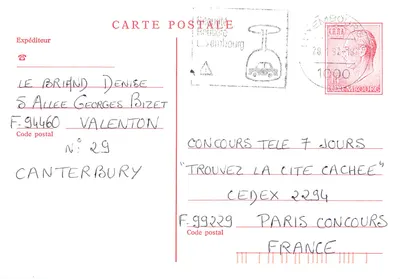 CARTE POSTALE
Expéditeur
LE BRIAND DENISE
5 ALLEE GEORGES BIZET
F-94460 VALENTON
Code postal
N° 29
CANTERBURY
Luxembourg
1000
LUXEMBOURG
CONCOURS TELE 7 JOURS
"TROUVEZ LA CITE CACHEE"
CEDEX 2294
F-99229 PARIS CONCOURS
Code postal
FRANCE